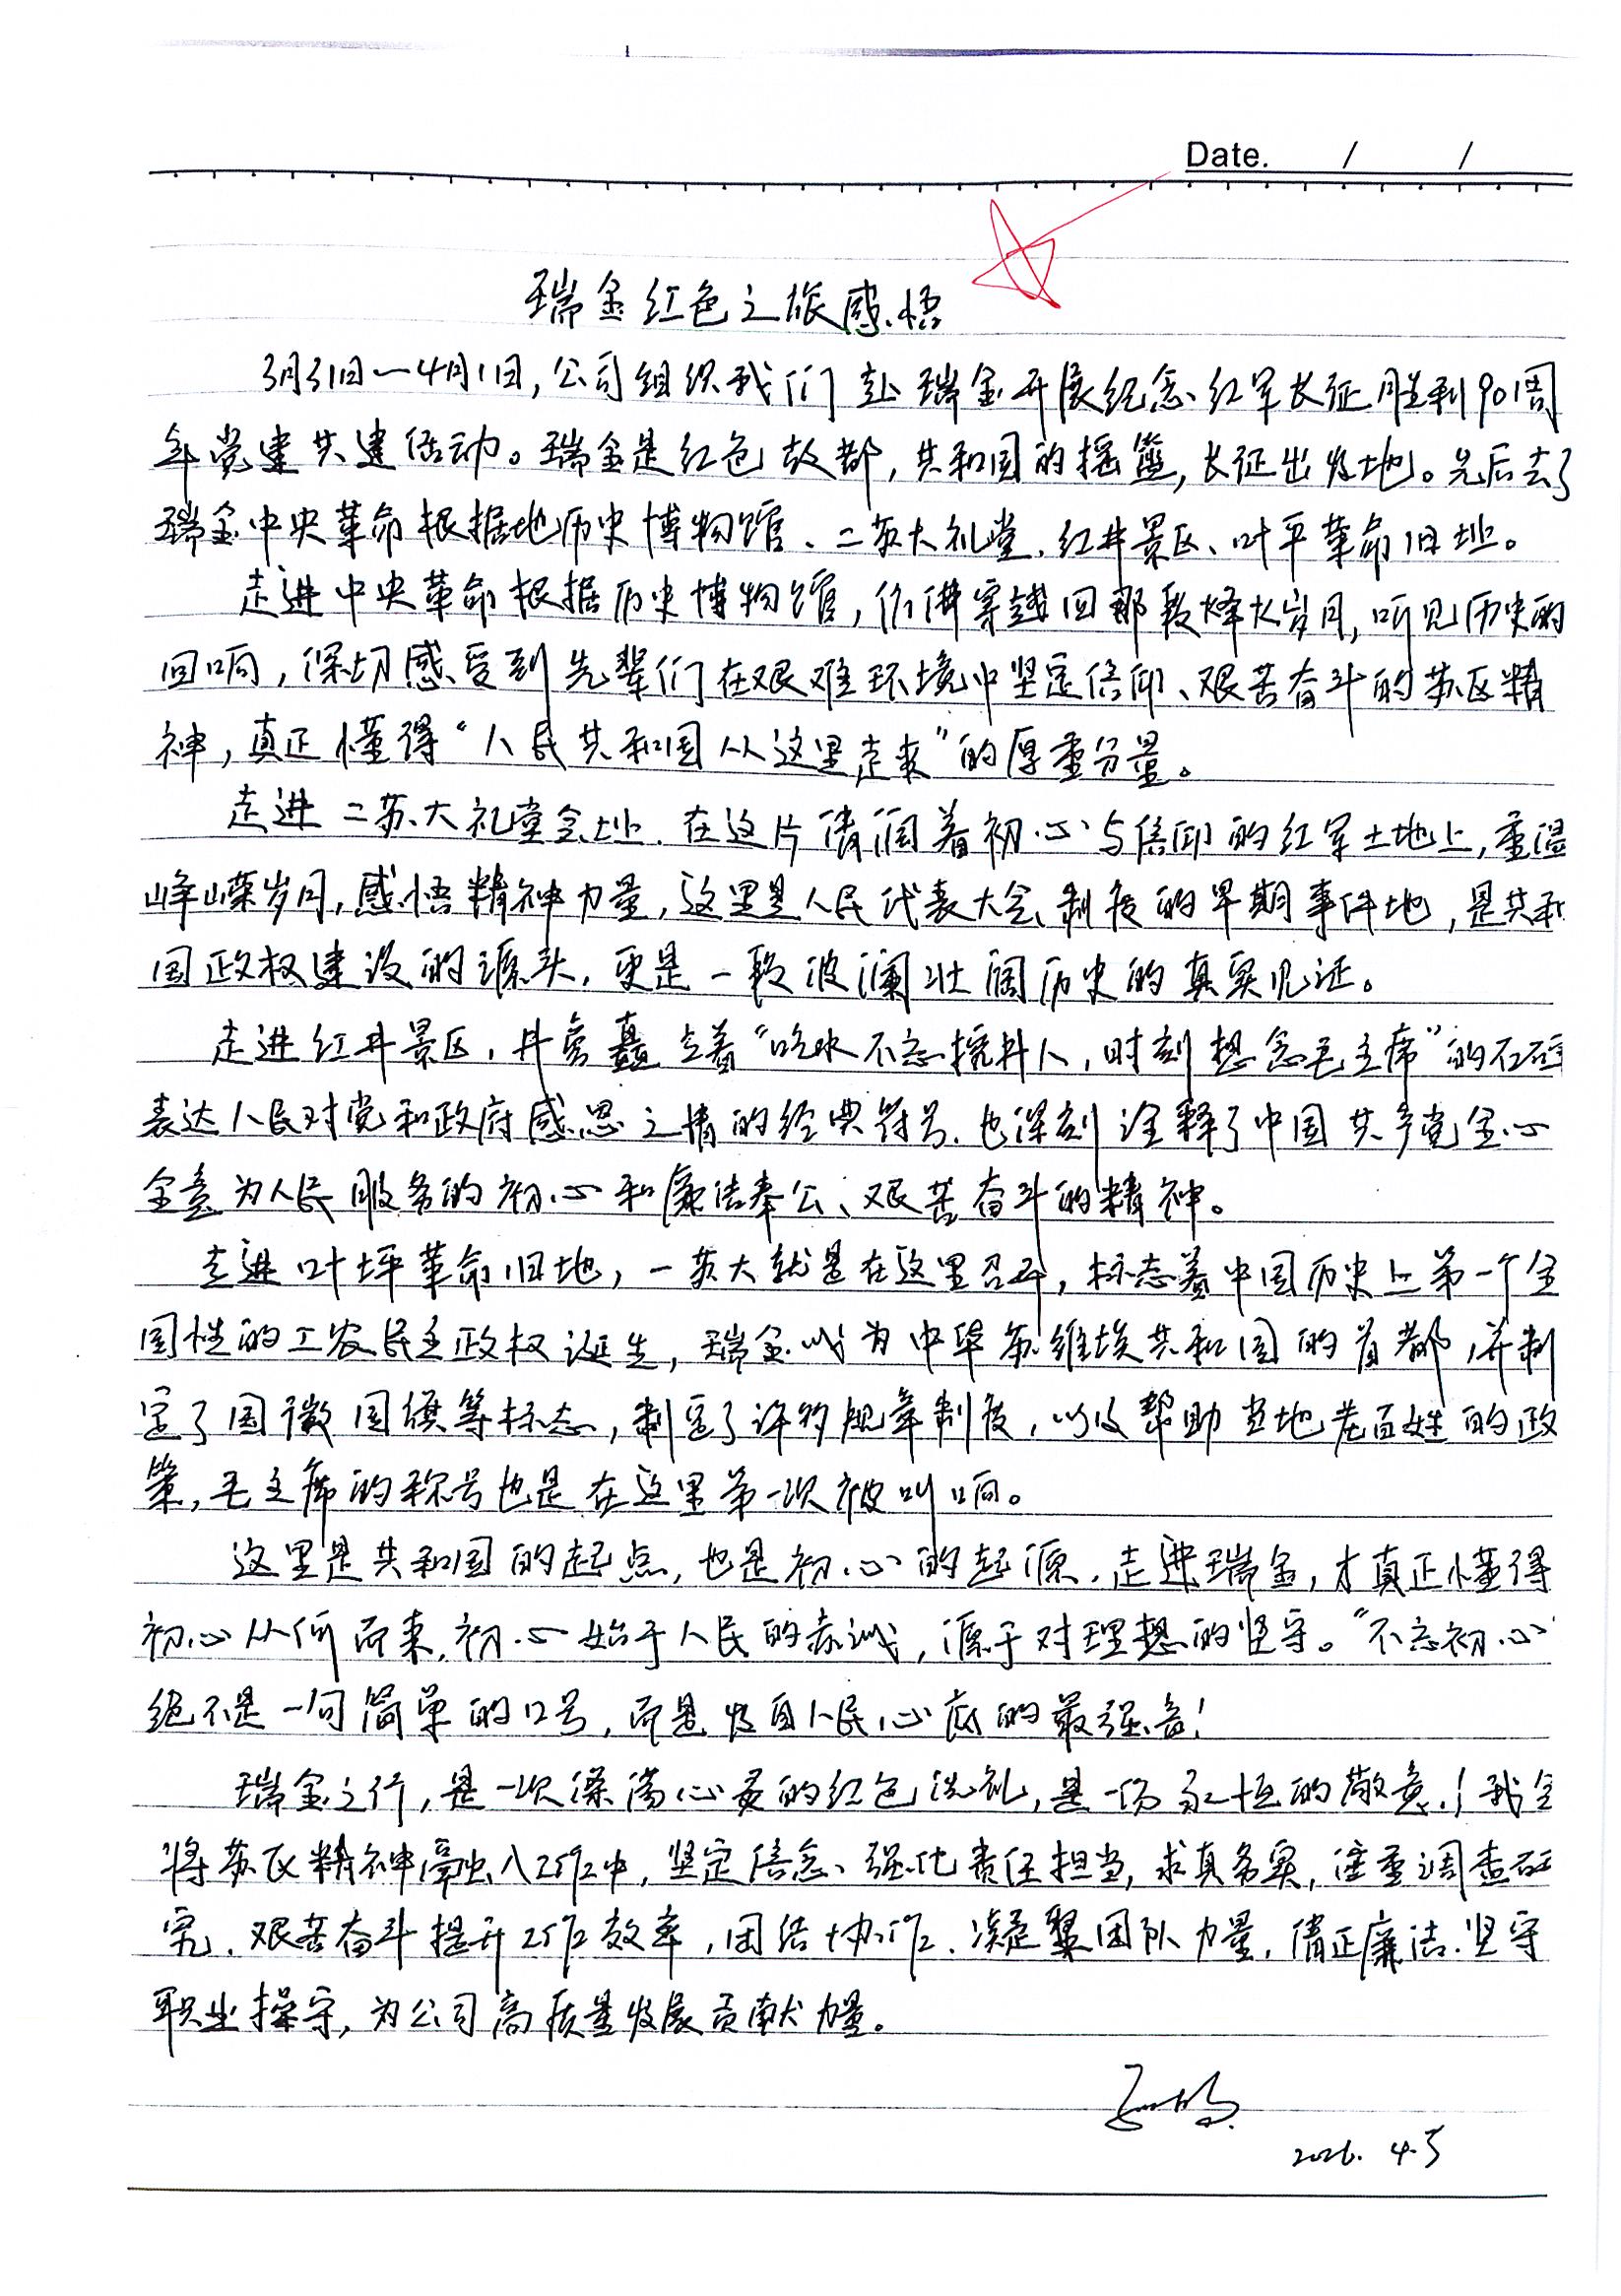 Date. / /
瑞金红色之旅感悟
3月31日—4月1日，公司组织我们赴瑞金开展纪念红军长征胜利90周
年党建共建活动。瑞金是红色故都，共和国的摇篮，长征出发地。先后去了
瑞金中央革命根据地历史博物馆、二苏大礼堂、红井景区、叶平革命旧址。
走进中央革命根据历史博物馆，仿佛穿越回那段烽火岁月，听见历史的
回响，深切感受到先辈们在艰难环境中坚定信仰、艰苦奋斗的苏区精
神，真正懂得“人民共和国从这里走来”的厚重分量。
走进二苏大礼堂会址，在这片浸润着初心与信仰的红军土地上，重温
峥嵘岁月，感悟精神力量，这里是人民代表大会制度的早期事件地，是共和
国政权建设的源头，更是一段波澜壮阔历史的真实见证。
走进红井景区，井旁矗立着“吃水不忘挖井人，时刻想念毛主席”的石碑
表达人民对党和政府感恩之情的经典符号，也深刻诠释了中国共产党全心
全意为人民服务的初心和廉洁奉公、艰苦奋斗的精神。
走进叶坪革命旧地，一苏大就是在这里召开，标志着中国历史上第一个全
国性的工农民主政权诞生，瑞金成为中华苏维埃共和国的首都，并制
定了国徽国旗等标志，制定了许多规章制度，以及帮助当地老百姓的政
策，毛主席的称号也是在这里第一次被叫响。
这里是共和国的起点，也是初心的起源，走进瑞金，才真正懂得
初心从何而来，初心始于人民的赤诚，源于对理想的坚守。“不忘初心”
绝不是一句简单的口号，而是发自人民心底的最强音！
瑞金之行，是一次涤荡心灵的红色洗礼，是一场永恒的敬意！我会
将苏区精神融入工作中，坚定信念、强化责任担当，求真务实，注重调查研
究、艰苦奋斗提升工作效率，团结协作、凝聚团队力量，清正廉洁、坚守
职业操守，为公司高质量发展贡献力量。
2026. 4.5